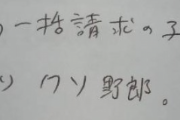 一括請求の子
り クソ野郎。